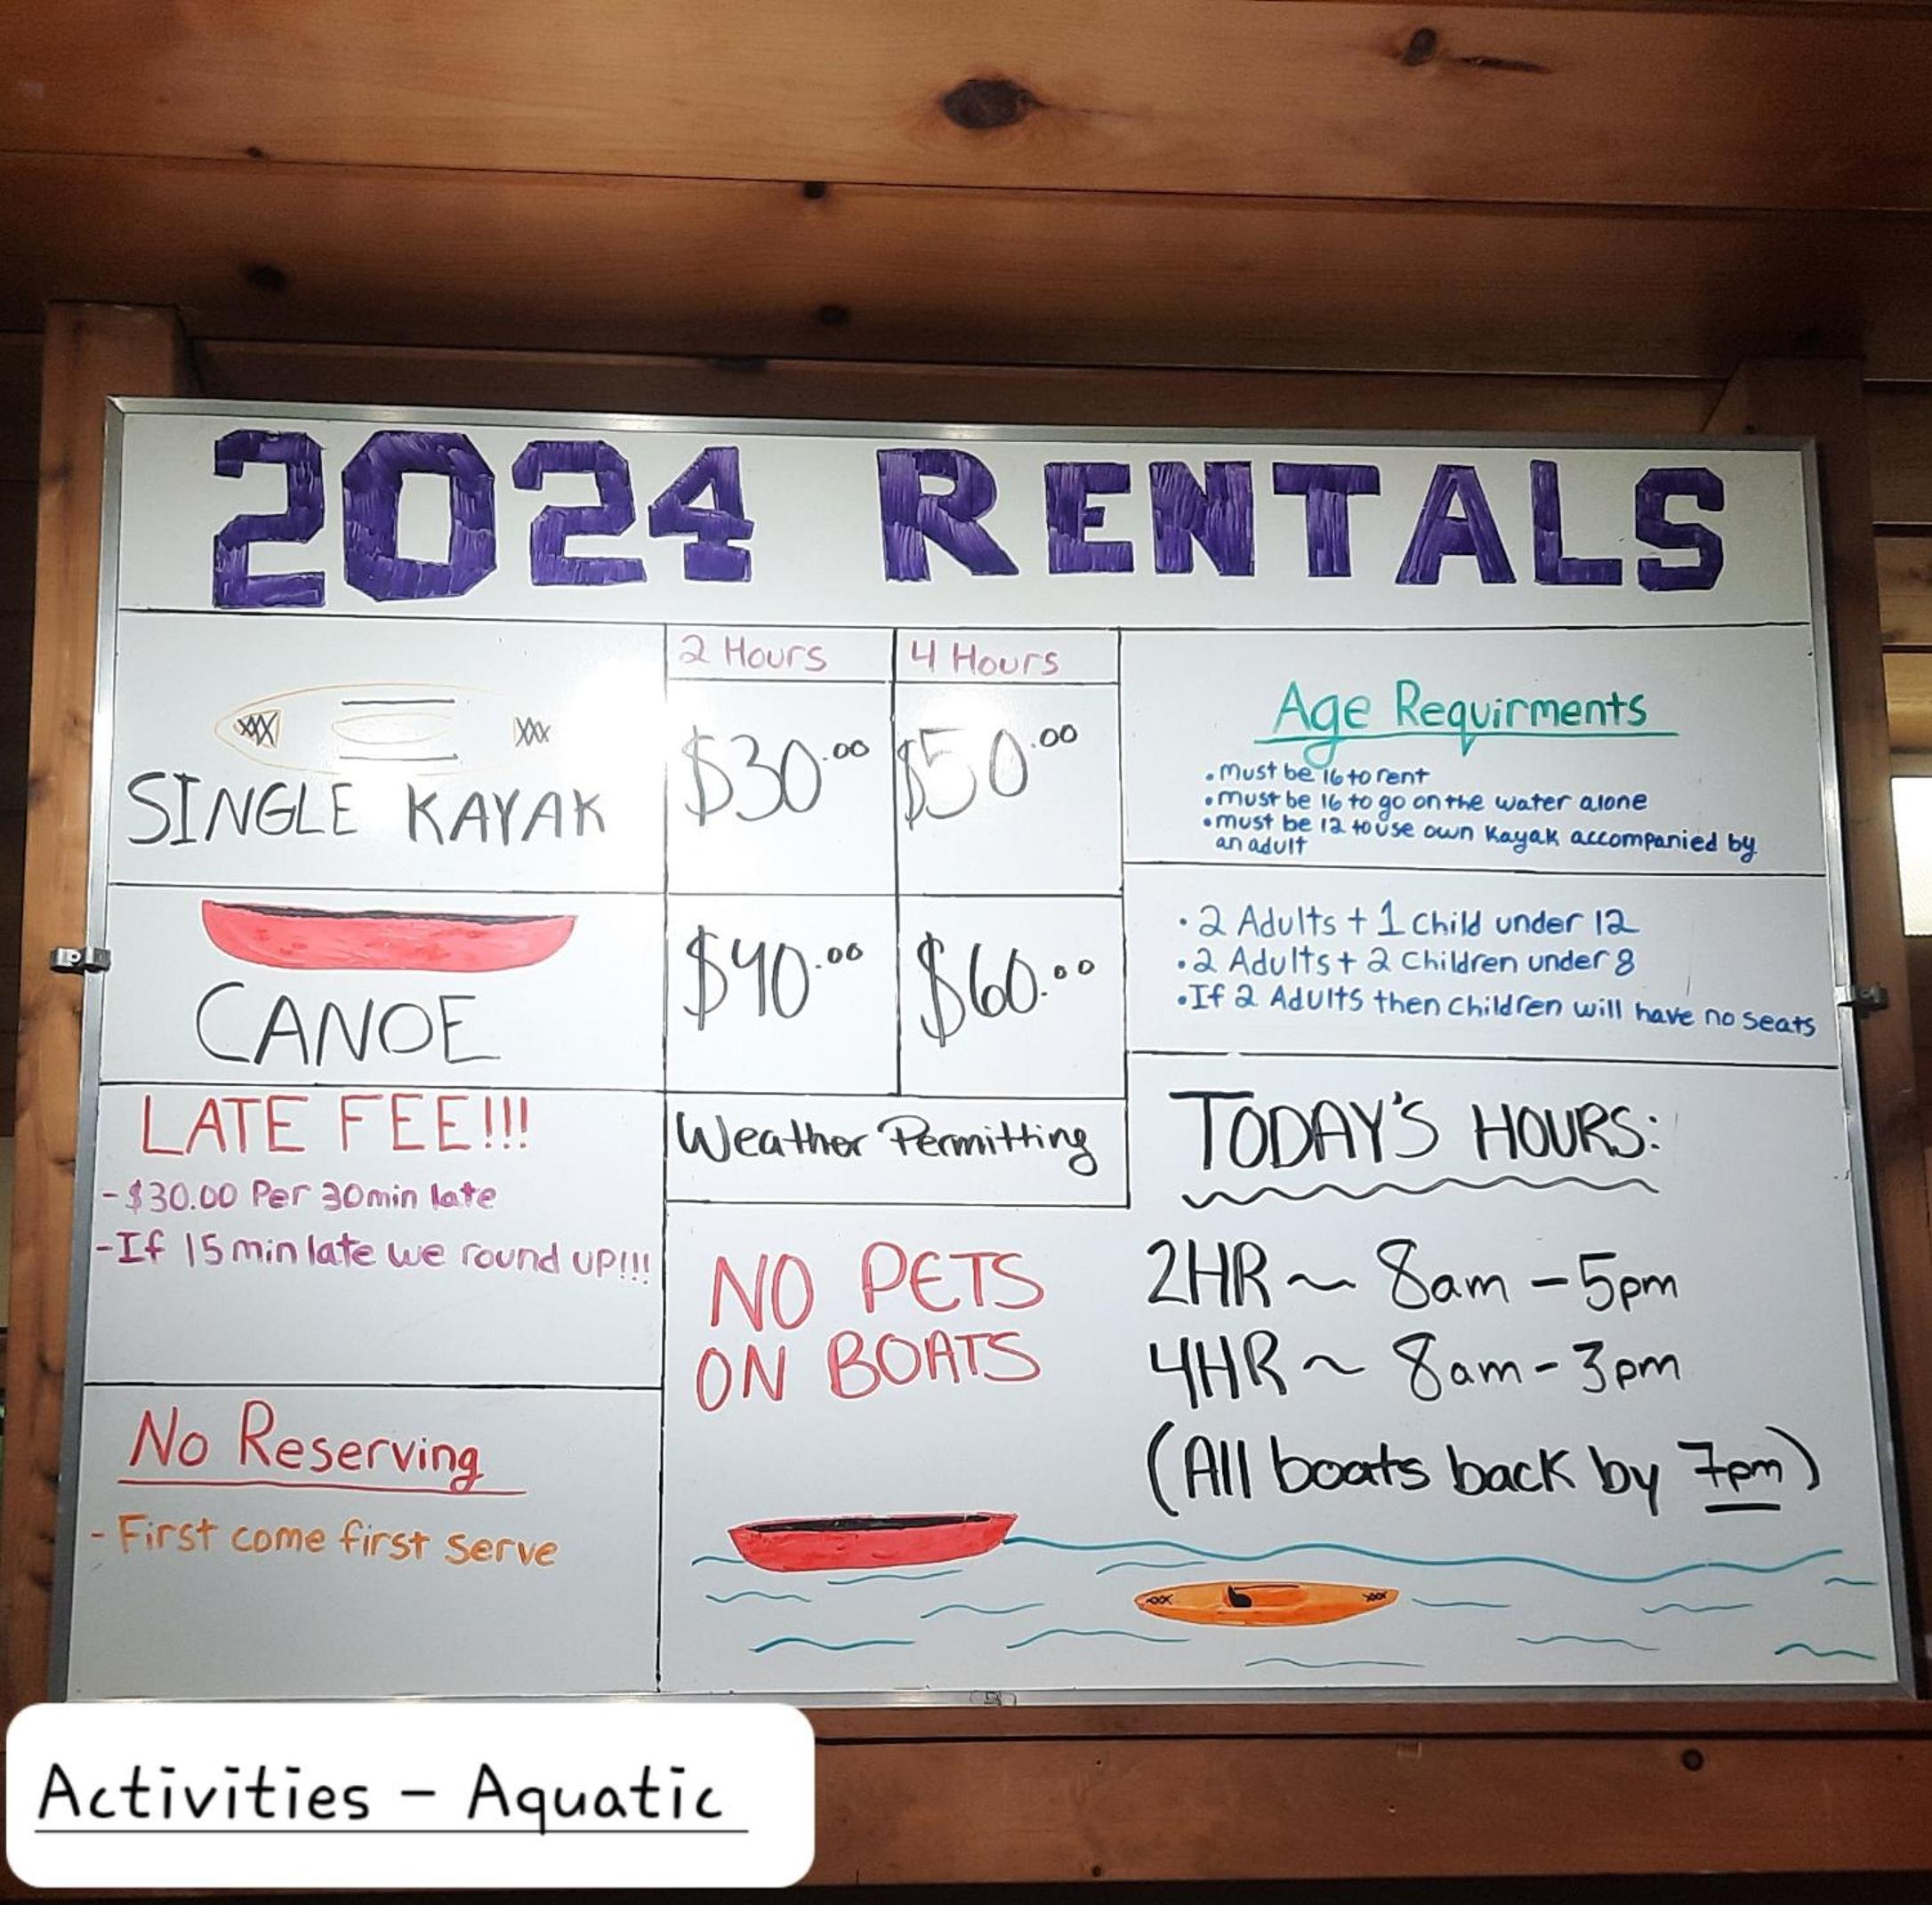 2024 RENTALS
2 Hours
4 Hours
SINGLE KAYAK
$30.00
$50.00
CANOE
$40.00
$60.00
Age Requirments
• must be 16 to rent
• must be 16 to go on the water alone
• must be 12 to use own kayak accompanied by
an adult
• 2 Adults + 1 Child under 12
• 2 Adults + 2 Children under 8
• If 2 Adults then children will have no seats
LATE FEE!!!
- $30.00 Per 30min late
- If 15 min late we round UP!!!
Weather Permitting
No Reserving
- First come first serve
NO PETS
ON BOATS
TODAY'S HOURS:
2HR ~ 8am - 5pm
4HR ~ 8am - 3pm
(All boats back by 7pm)
Activities - Aquatic